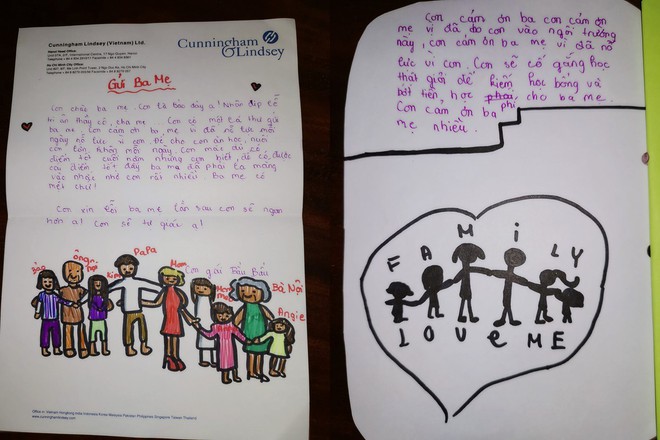 Cunningham Lindsey (Vietnam) Ltd.
Hanoi Head Office:
Ho Chi Minh City Office:
Cunningham
Lindsey
Gửi Ba Mẹ
Con chào ba mẹ. Con là Bảo đây ạ! Nhân dịp lễ
tri ân thầy cô, cha mẹ. Con có một lá thư gửi
ba mẹ. Con cảm ơn ba mẹ vì đã nỗ lực mỗi
ngày nỗ lực vì con. Để cho con ăn học, nuôi
con lớn khôn mỗi ngày. Con mặc dù có
điểm tốt cuối năm nhưng con biết, để có được
cây điểm tốt đấy ba mẹ đã phải la mắng
vào nhắc nhở con rất nhiều. Ba mẹ có
mệt chứ!
Con xin lỗi ba mẹ lần sau con sẽ ngoan
hơn ạ! Con sẽ tự giác ạ!
Con gái Bầu Bẩu
Bảo
ông nội
Kim
PaPa
Mom
Bà Nội
Angie
Office in: Vietnam Hongkong India Indonesia Korea Malaysia Pakistan Philippines Singapore Taiwan Thailand
www.cunninghamlindsey.com
Con cảm ơn ba con cảm ơn
mẹ vì đã cho con vào ngôi trường
này, con cảm ơn ba mẹ vì đã nỗ
lực vì con. Con sẽ cố gắng học
thật giỏi để kiếm học bổng và
bớt tiền học phải phí cho ba mẹ.
Con cảm ơn ba
mẹ nhiều.
FAMiLY
LOVeME